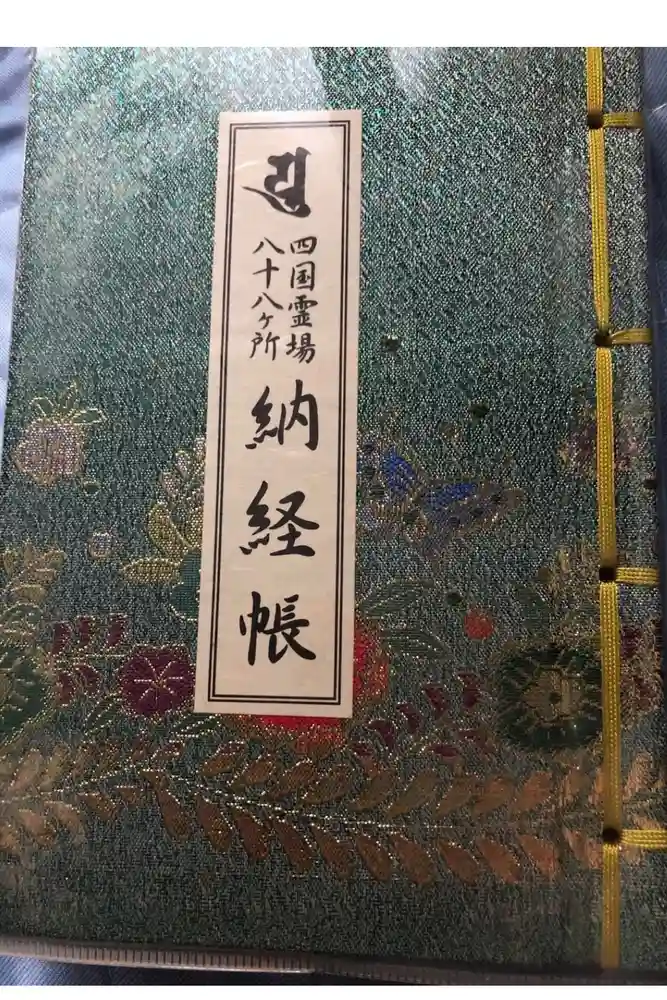 𑖧𑖲
四国霊場
八十八ヶ所
納経帳